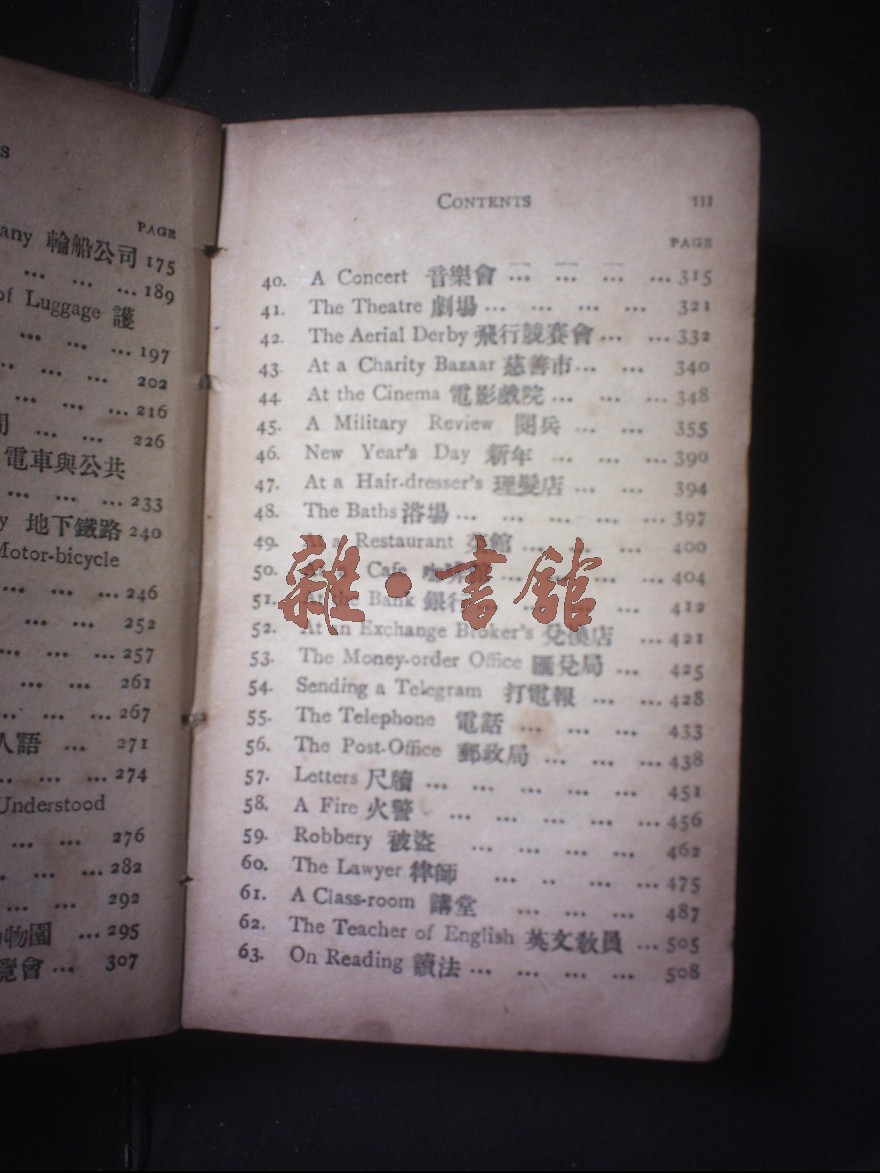 s
PAGE
any 輪船公司 175
... ... ... 189
of Luggage 護
... ... ... 197
... ... ... 202
... ... ... 216
... ... 226
電車與公共
... ... ... 233
y 地下鐵路 240
Motor-bicycle
... ... ... 246
... ... 252
... ... 257
... ... 261
... ... ... 267
人語 ... 271
... ... ... 274
Understood
... ... 276
... ... ... 282
... ... 292
物園 ... 295
覽會 ... 307
CONTENTS III
PAGE
40. A Concert 音樂會 ... ... ... ... 315
41. The Theatre 劇場 ... ... ... ... 321
42. The Aerial Derby 飛行競賽會 ... ... 332
43. At a Charity Bazaar 慈善市 ... ... 340
44. At the Cinema 電影戲院 ... ... ... 348
45. A Military Review 閱兵 ... ... 355
46. New Year's Day 新年 ... ... ... 390
47. At a Hair-dresser's 理髮店 ... ... 394
48. The Baths 浴場 ... ... ... ... 397
49. At a Restaurant 菜館 ... ... ... 400
50. At a Cafe 咖啡館 ... ... ... ... 404
51. At the Bank 銀行 ... ... ... ... 412
52. At an Exchange Broker's 兌換店 ... 421
53. The Money-order Office 匯兌局 ... 425
54. Sending a Telegram 打電報 ... ... 428
55. The Telephone 電話 ... ... ... 433
56. The Post-Office 郵政局 ... ... ... 438
57. Letters 尺牘 ... ... ... ... ... 451
58. A Fire 火警 ... ... ... ... ... 456
59. Robbery 被盜 ... ... ... ... 462
60. The Lawyer 律師 ... .. ... ... 475
61. A Class-room 講堂 ... ... ... 487
62. The Teacher of English 英文敎員 ... 505
63. On Reading 讀法 ... ... ... ... 508
雜·書館